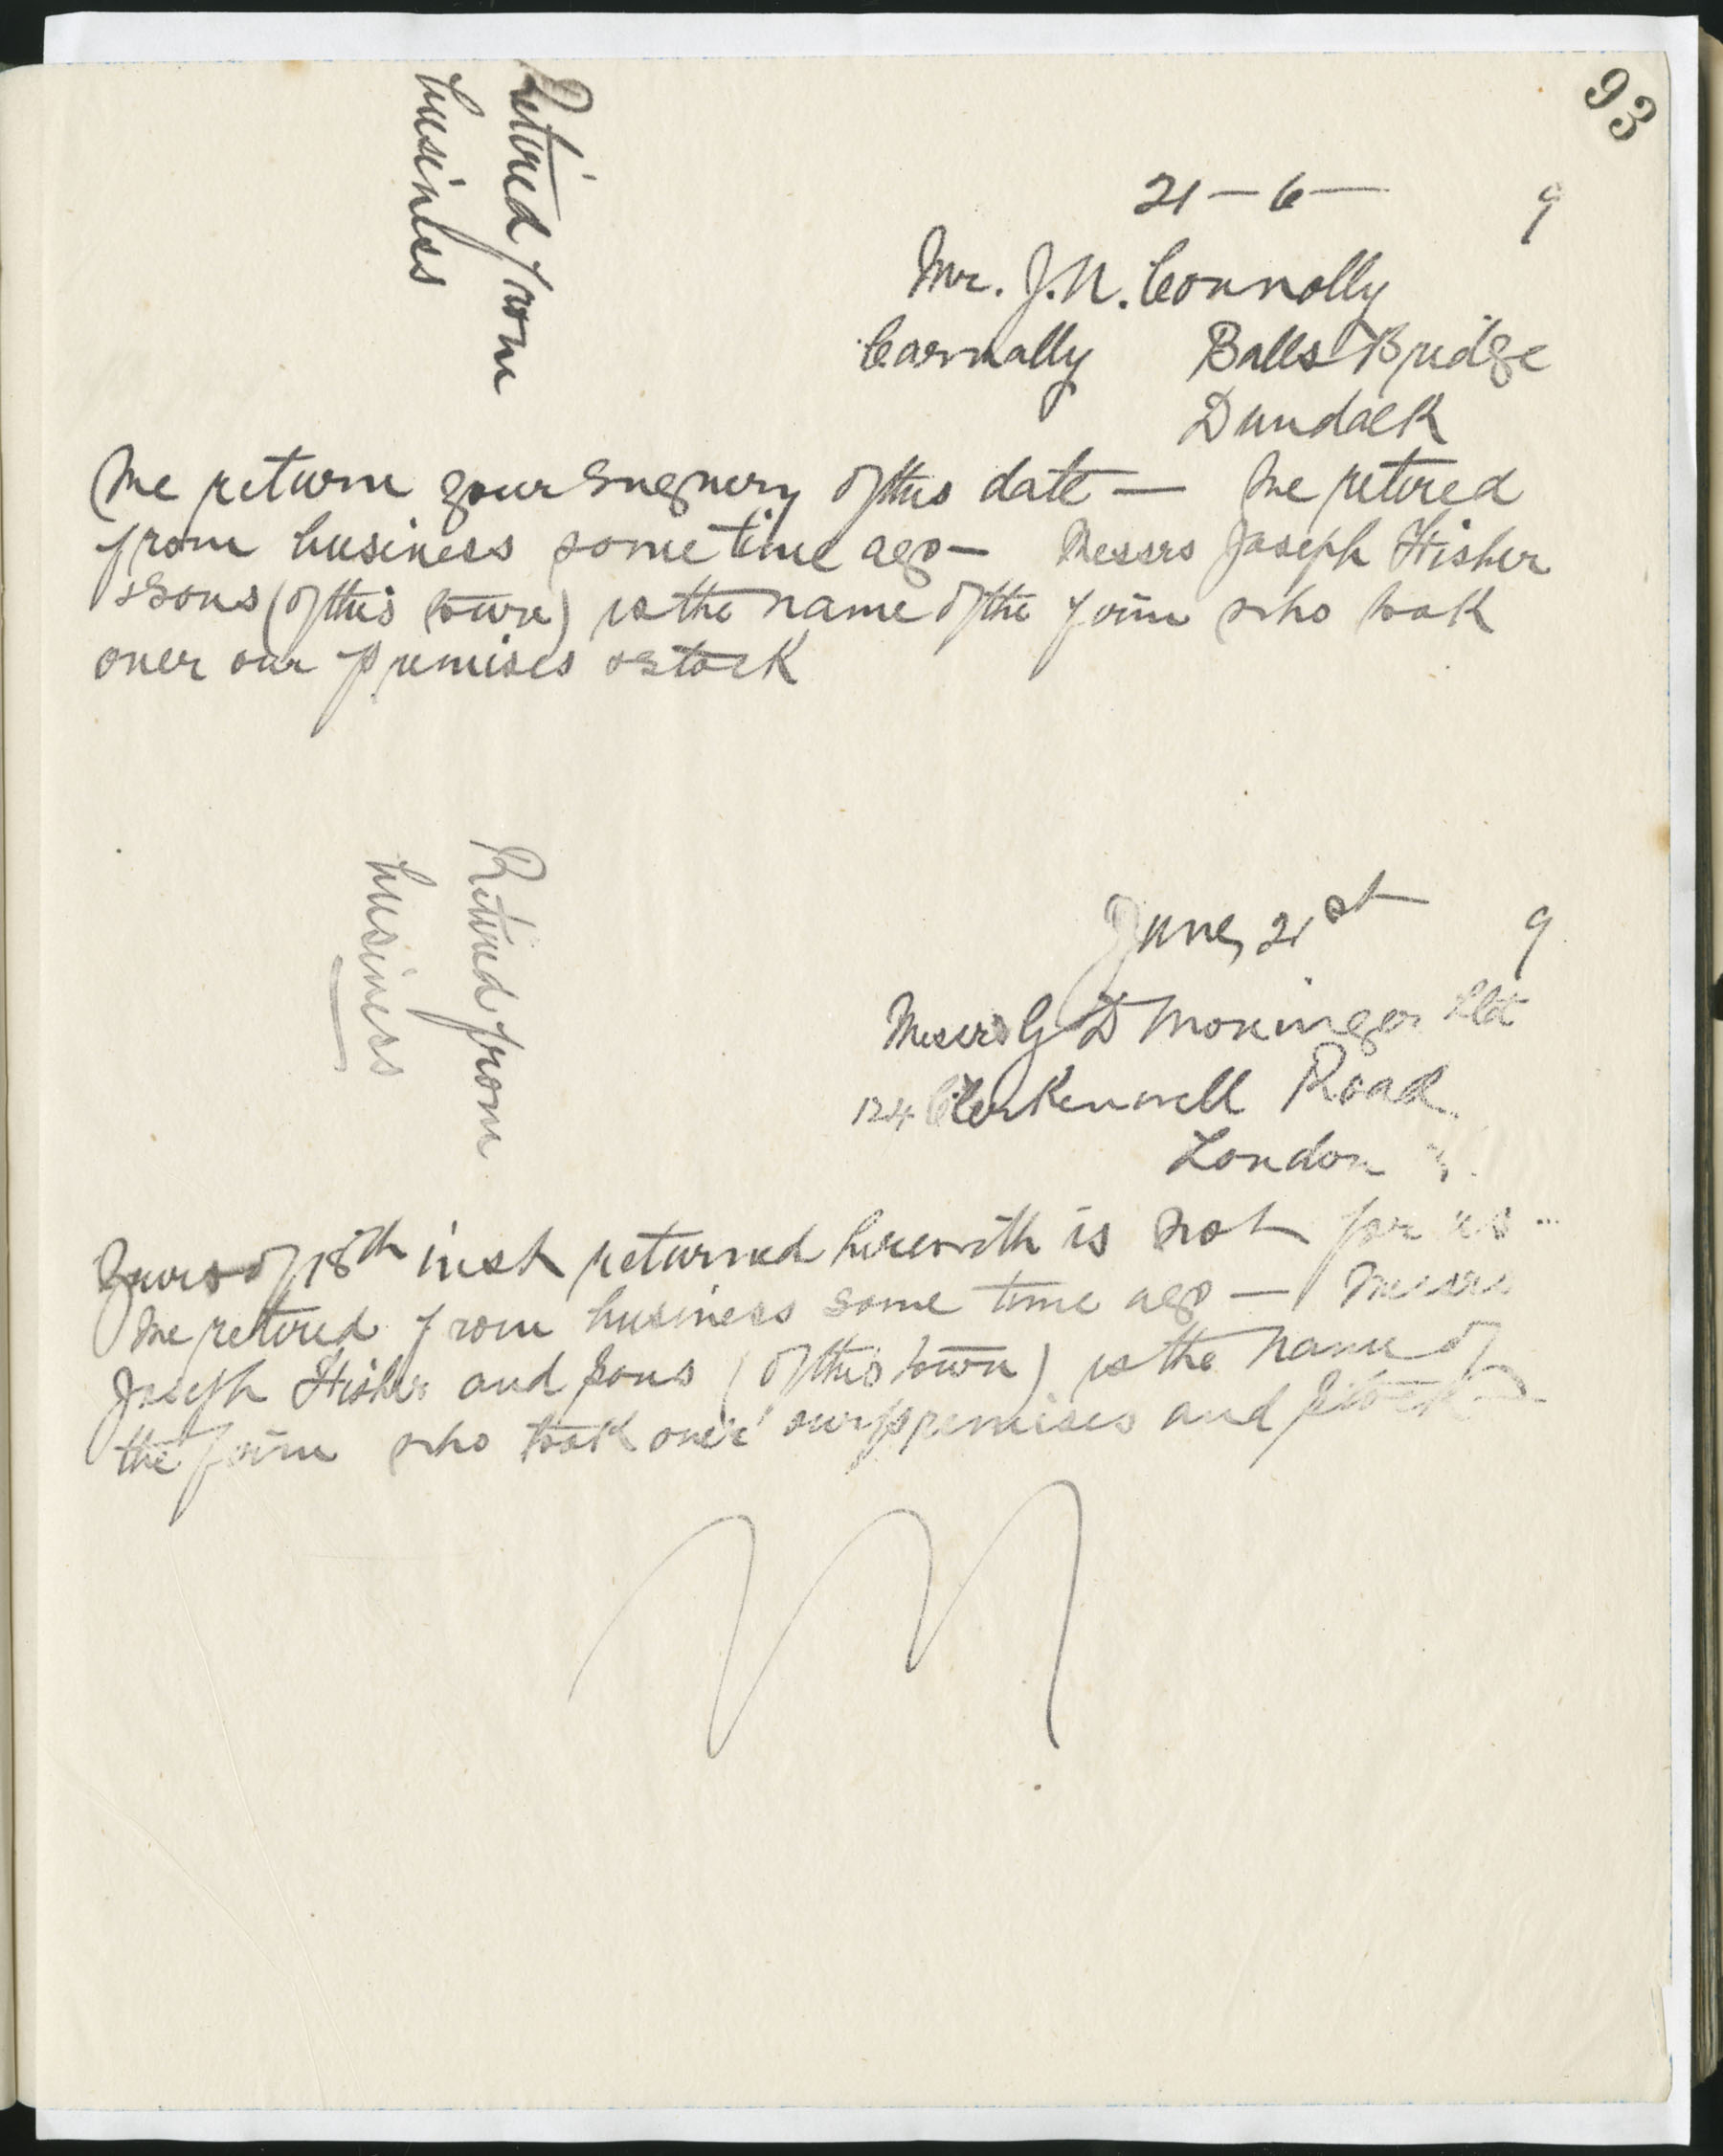 93
Retired from
business
21-6- 9
Mr. J.N. Connolly
Carnally Balls Bridge
Dundalk
We return your Enquiry of this date — We retired
from business some time ago — Messrs Joseph Fisher
& Sons (of this town) is the name of the firm who took
over our premises & stock
Retired from
business
June, 21st 9
Messrs G D Ltd
124 Clerkenwell Road
London
Yours of 18th inst returned herewith is not for us
We retired from business some time ago — Messrs
Joseph Fisher and Sons (of this town) is the name of
the firm who took over our premises and stock